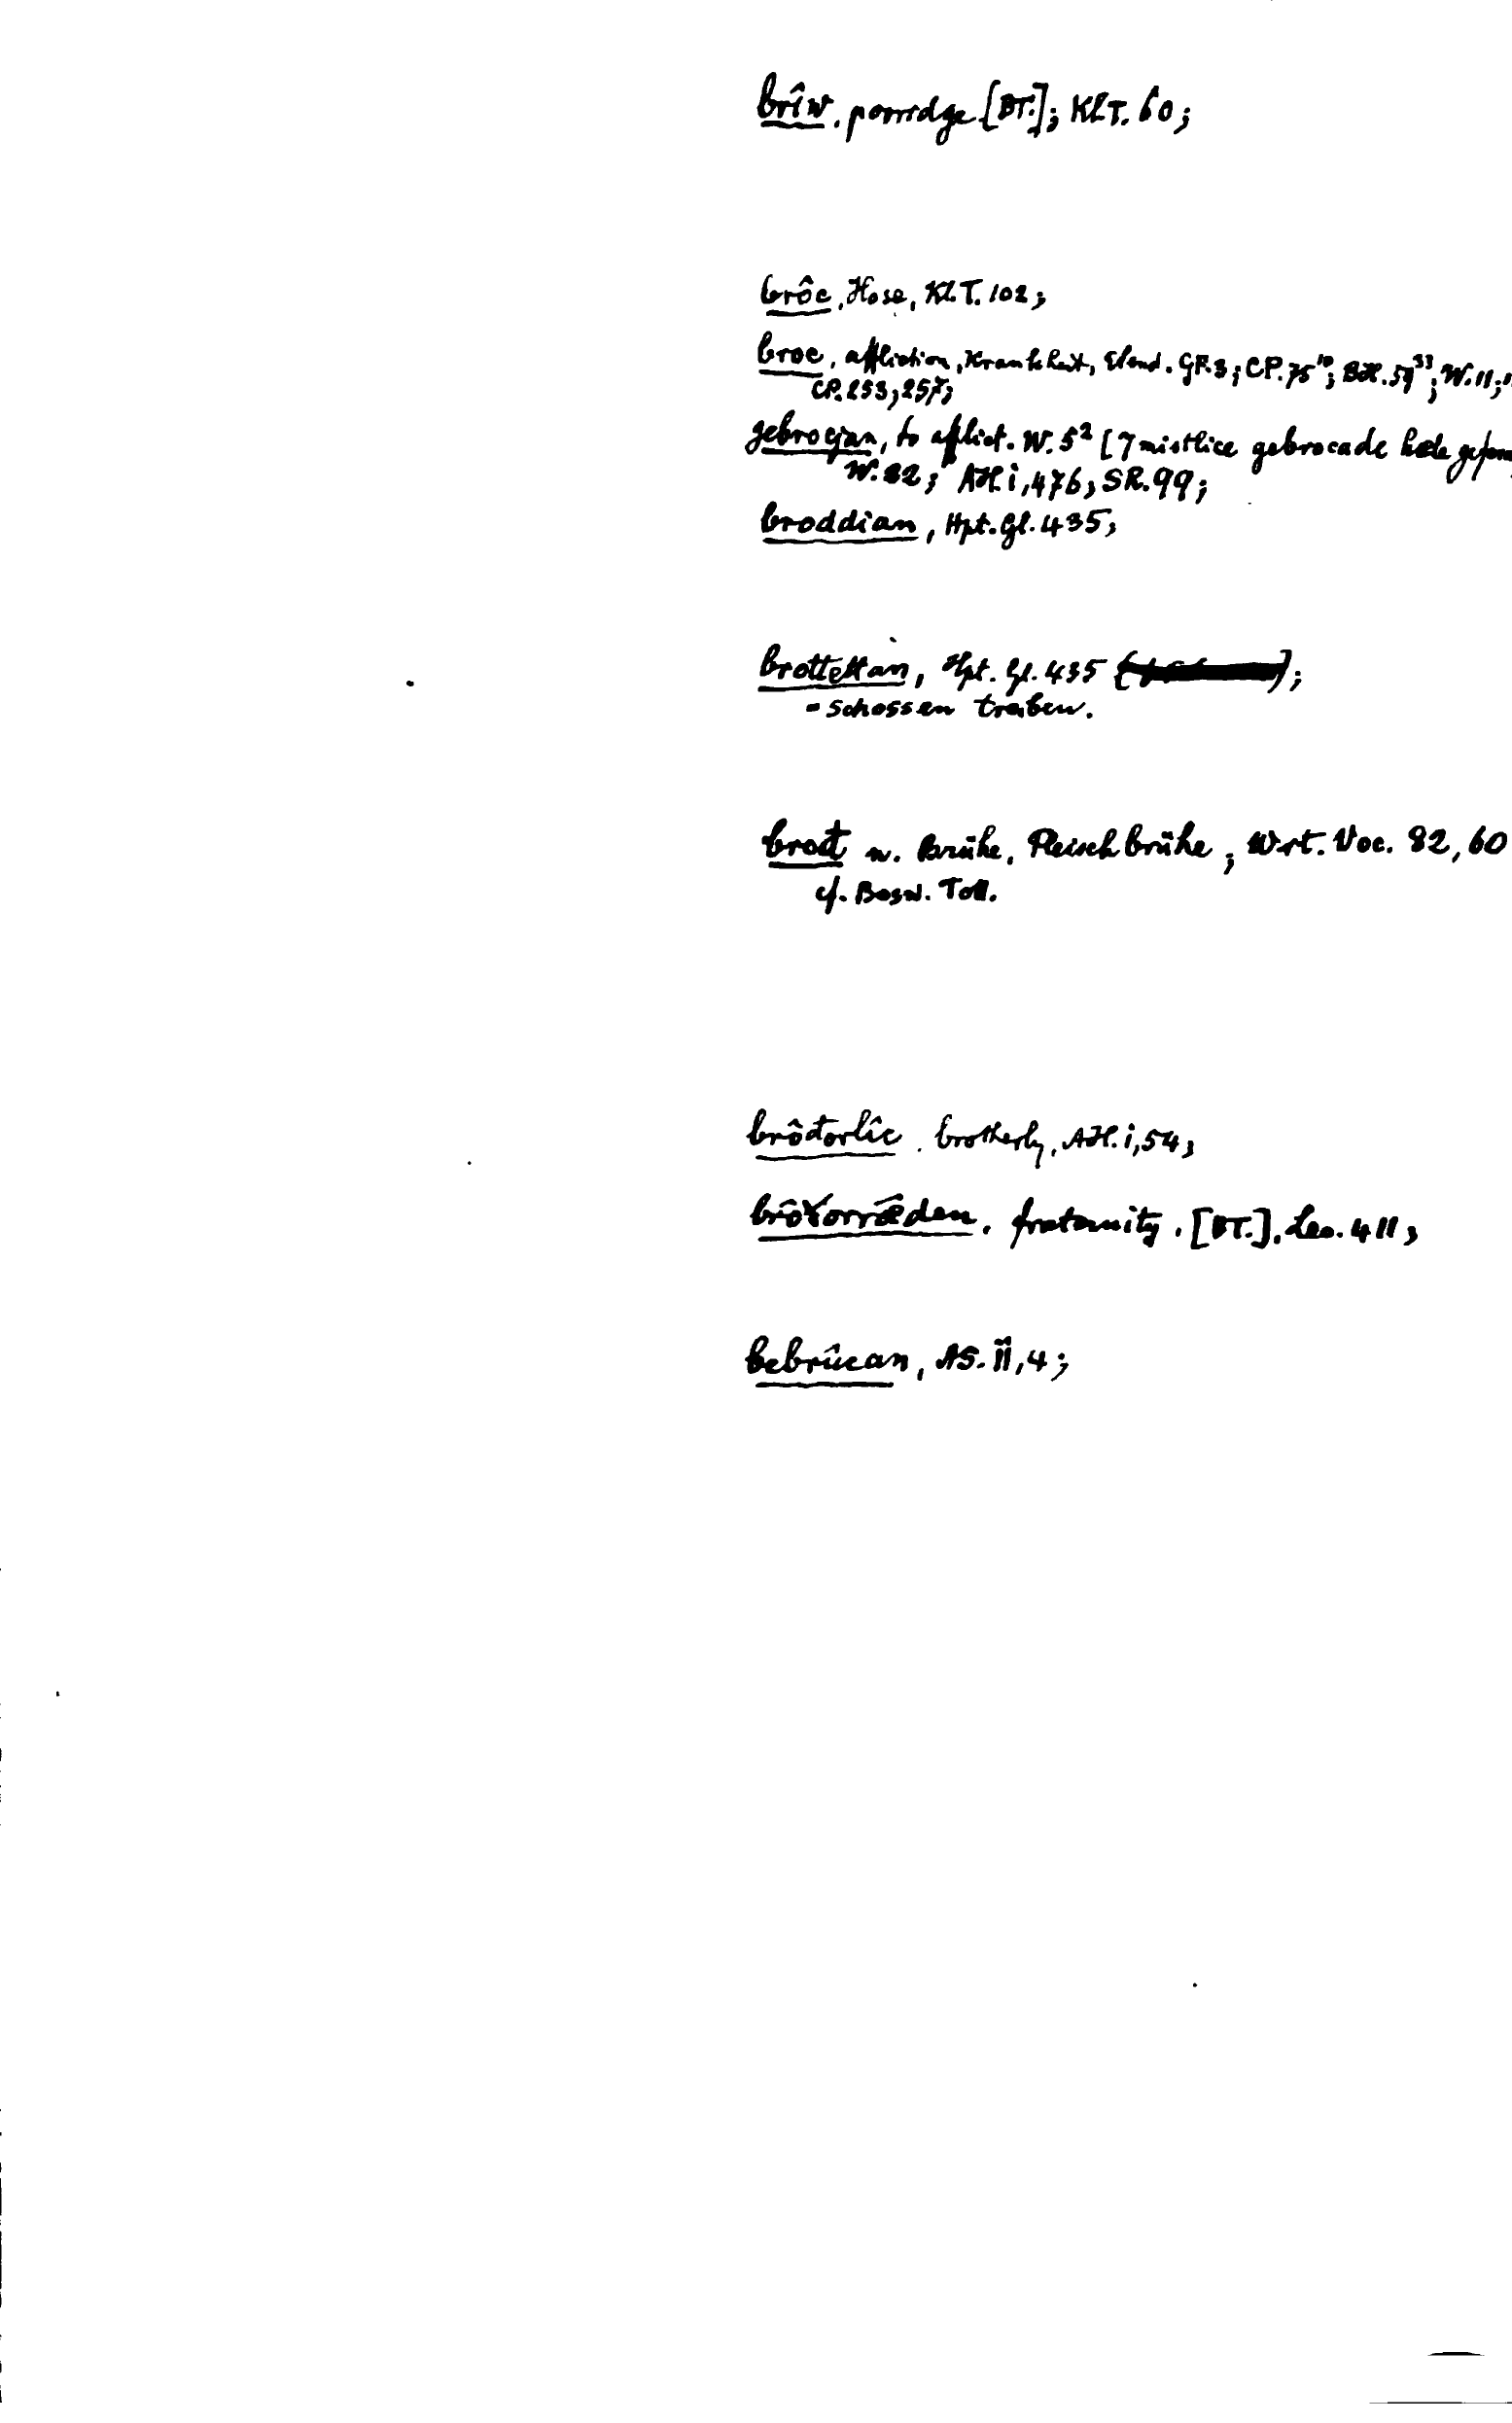 brîw, porridge [BT.]; KlT. 60;
brôc, Hose, Kl.T. 102;
broc, affliction, Krankheit, Elend. GF.3; CP. 75¹⁰; BH. 59³³; W. 11;
CP. 253, 257;
gebrocian, to afflict. W. 5² [⁊ mistlice gebrocade
W. 82; AH. i, 476, SR. 99;
broddian, Hpt. Gl. 435;
brottettan, Hpt. Gl. 435 ;
= schossen traben.
brođ n. Brühe, Fleischbrühe; Wrt. Voc. 82, 60
cf. Bosw. Toll.
brôđorlîc, brotherly, AH. i, 54;
brôðorrǣden, fraternity. [BT.], Leo. 411;
bebrûcan, AS. ii, 4;